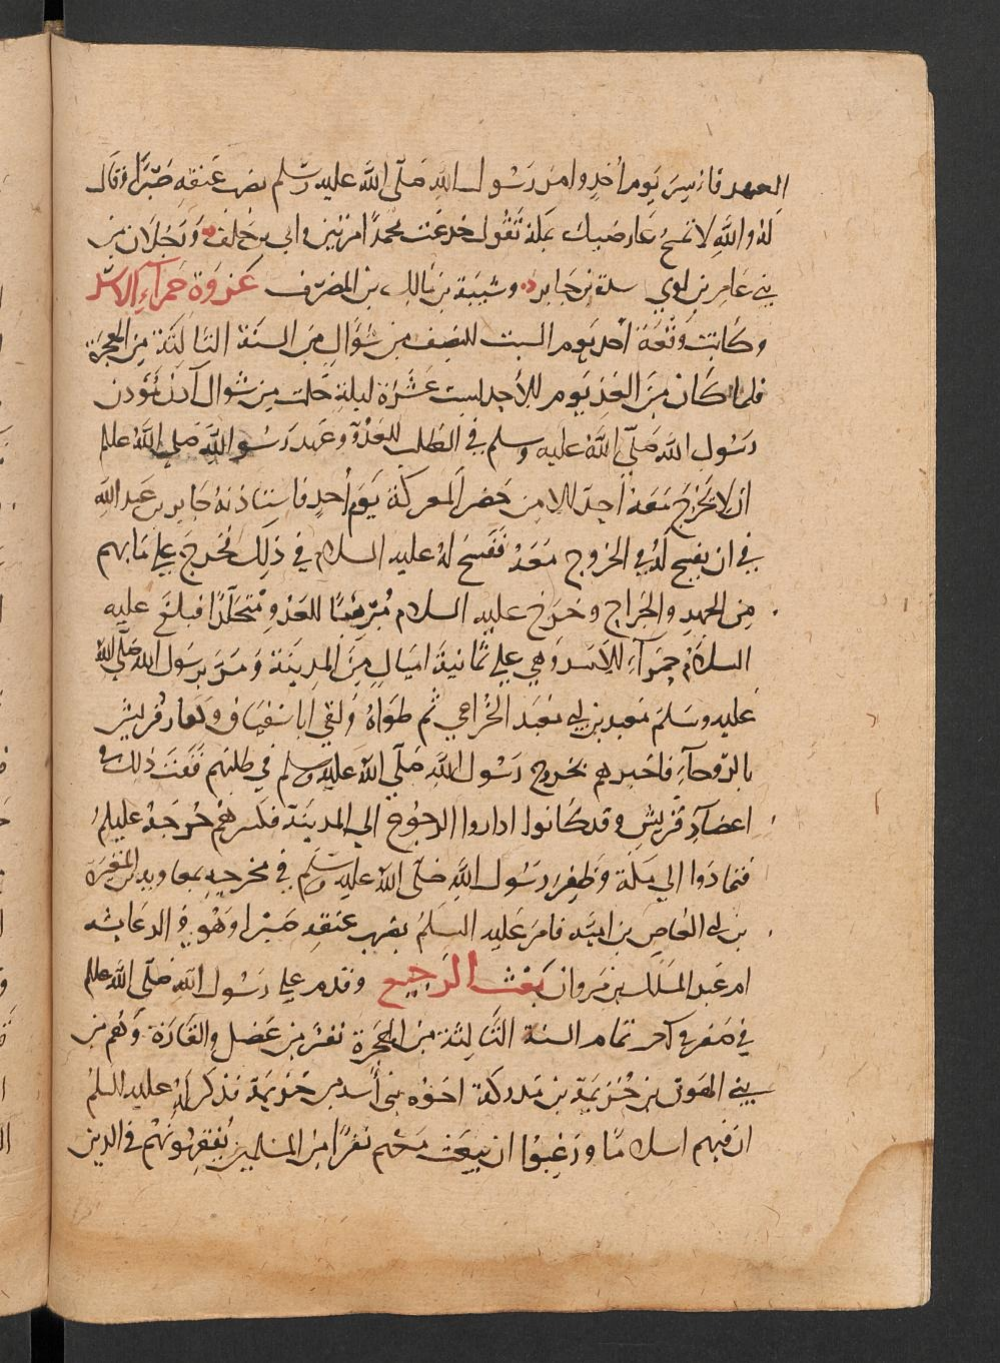 العهد فاسر يوم أحد وامر رسول الله صلى الله عليه وسلم بضرب عنقه صبرا وقال
له والله لا تمسح عارضيك بمكة تقول خدعت محمدا مرتين وابي بن خلف ورجلان من
بني عامر بن لوي سلمة بن جابر وشيبة بن مالك بن المضرف غزوة حمراء الاسد
وكانت وقعة أحد يوم السبت للنصف من شوال من السنة الثالثة من الهجرة
فلما كان من الغد يوم الأحد لست عشرة ليلة خلت من شوال أذن مؤذن
رسول الله صلى الله عليه وسلم في الطلب للعدو وعهد رسول الله صلى الله علم
ان لا يخرج معه أحد الا من حضر المعركة يوم أحد فاستاذنه جابر بن عبد الله
في ان يفسح له في الخروج معه ففسح له عليه السلام في ذلك فخرج علي ما بهم
من الجهد والجراح وخرج عليه السلام مرهبا للعدو ومتجلدا فبلغ عليه
السلام حمراء الاسد وهي علي ثمانية اميال من المدينة ومر برسول الله صلى الله
عليه وسلم معبد بن ابي معبد الخزاعي ثم طواه ولقي ابا سفيان وكفار قريش
بالروحاء فاخبرهم بخروج رسول الله صلى الله عليه وسلم في طلبهم ففت ذلك في
اعضاد قريش وقد كانوا ارادوا الرجوع الي المدينة فكسرهم خروجه عليلم
فتمادوا الي مكة وظفر رسول الله صلى الله عليه وسلم في مخرجه بمعاوية بن المغيرة
بن ابي العاص بن امية فامر عليه السلم بضرب عنقه صبرا وهو والد عائشة
ام عبد الملك بن مروان بعث الرجيع وقدم علي رسول الله صلى الله علم
في صفر في آخر تمام السنة الثالثة من الهجرة نفر من عضل والقارة وهم من
بني الهون بن خزيمة بن مدركة اخوه بني أسد بن خزيمة فذكر له عليه السلم
ان فيهم اسلاما ورغبوا ان يبعث معهم نفرا من المسلمين يفقهونهم في الدين